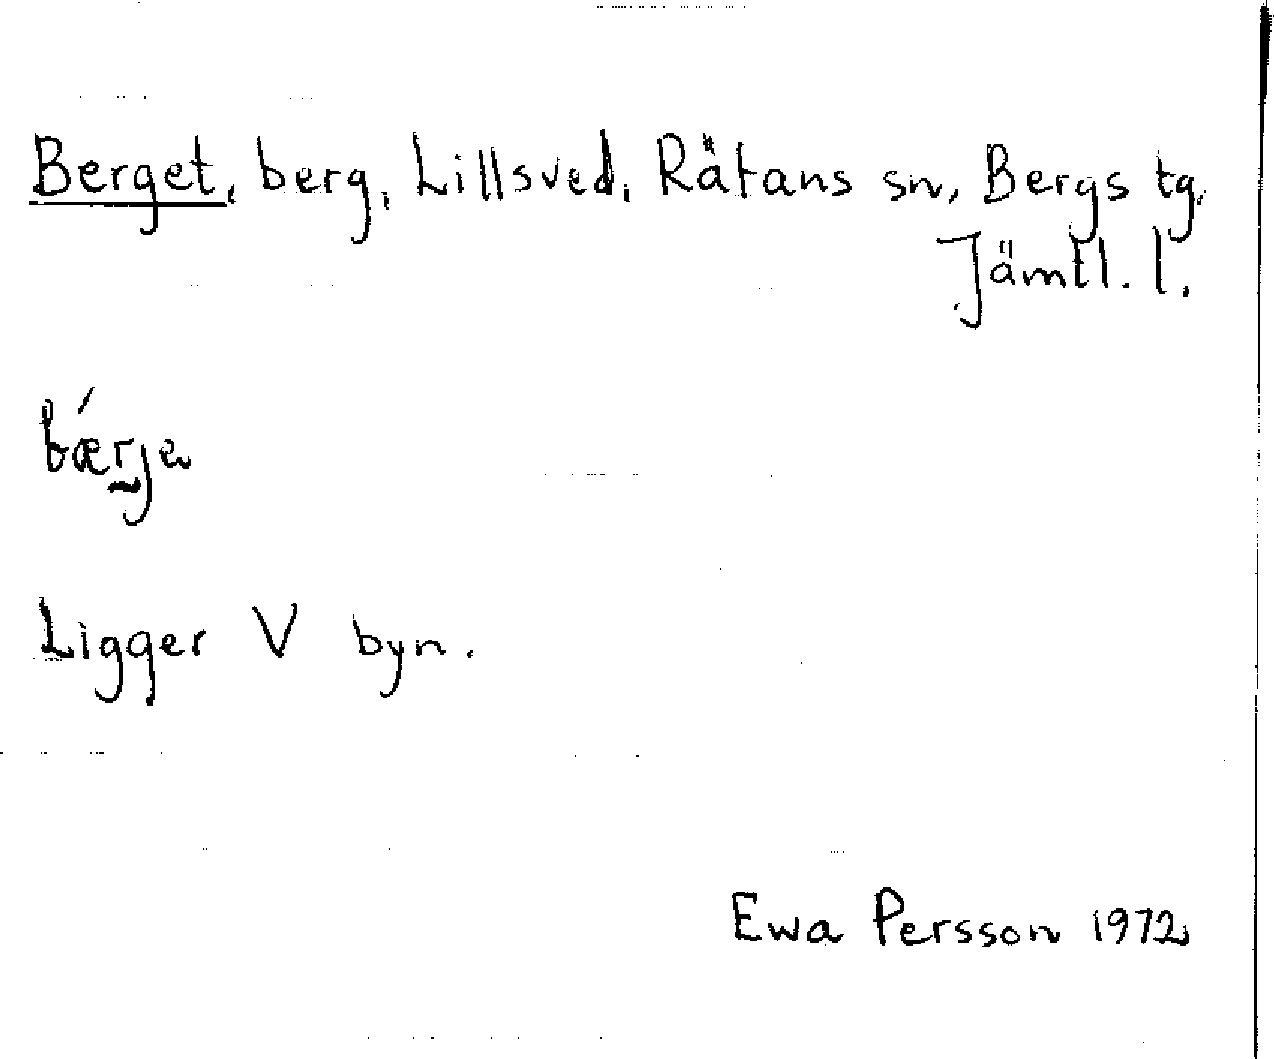 Berget, berg, Lillsved, Rätans sn, Bergs tg,
Jämtl. l.
bǽrje
Ligger V byn.
Ewa Persson 1972